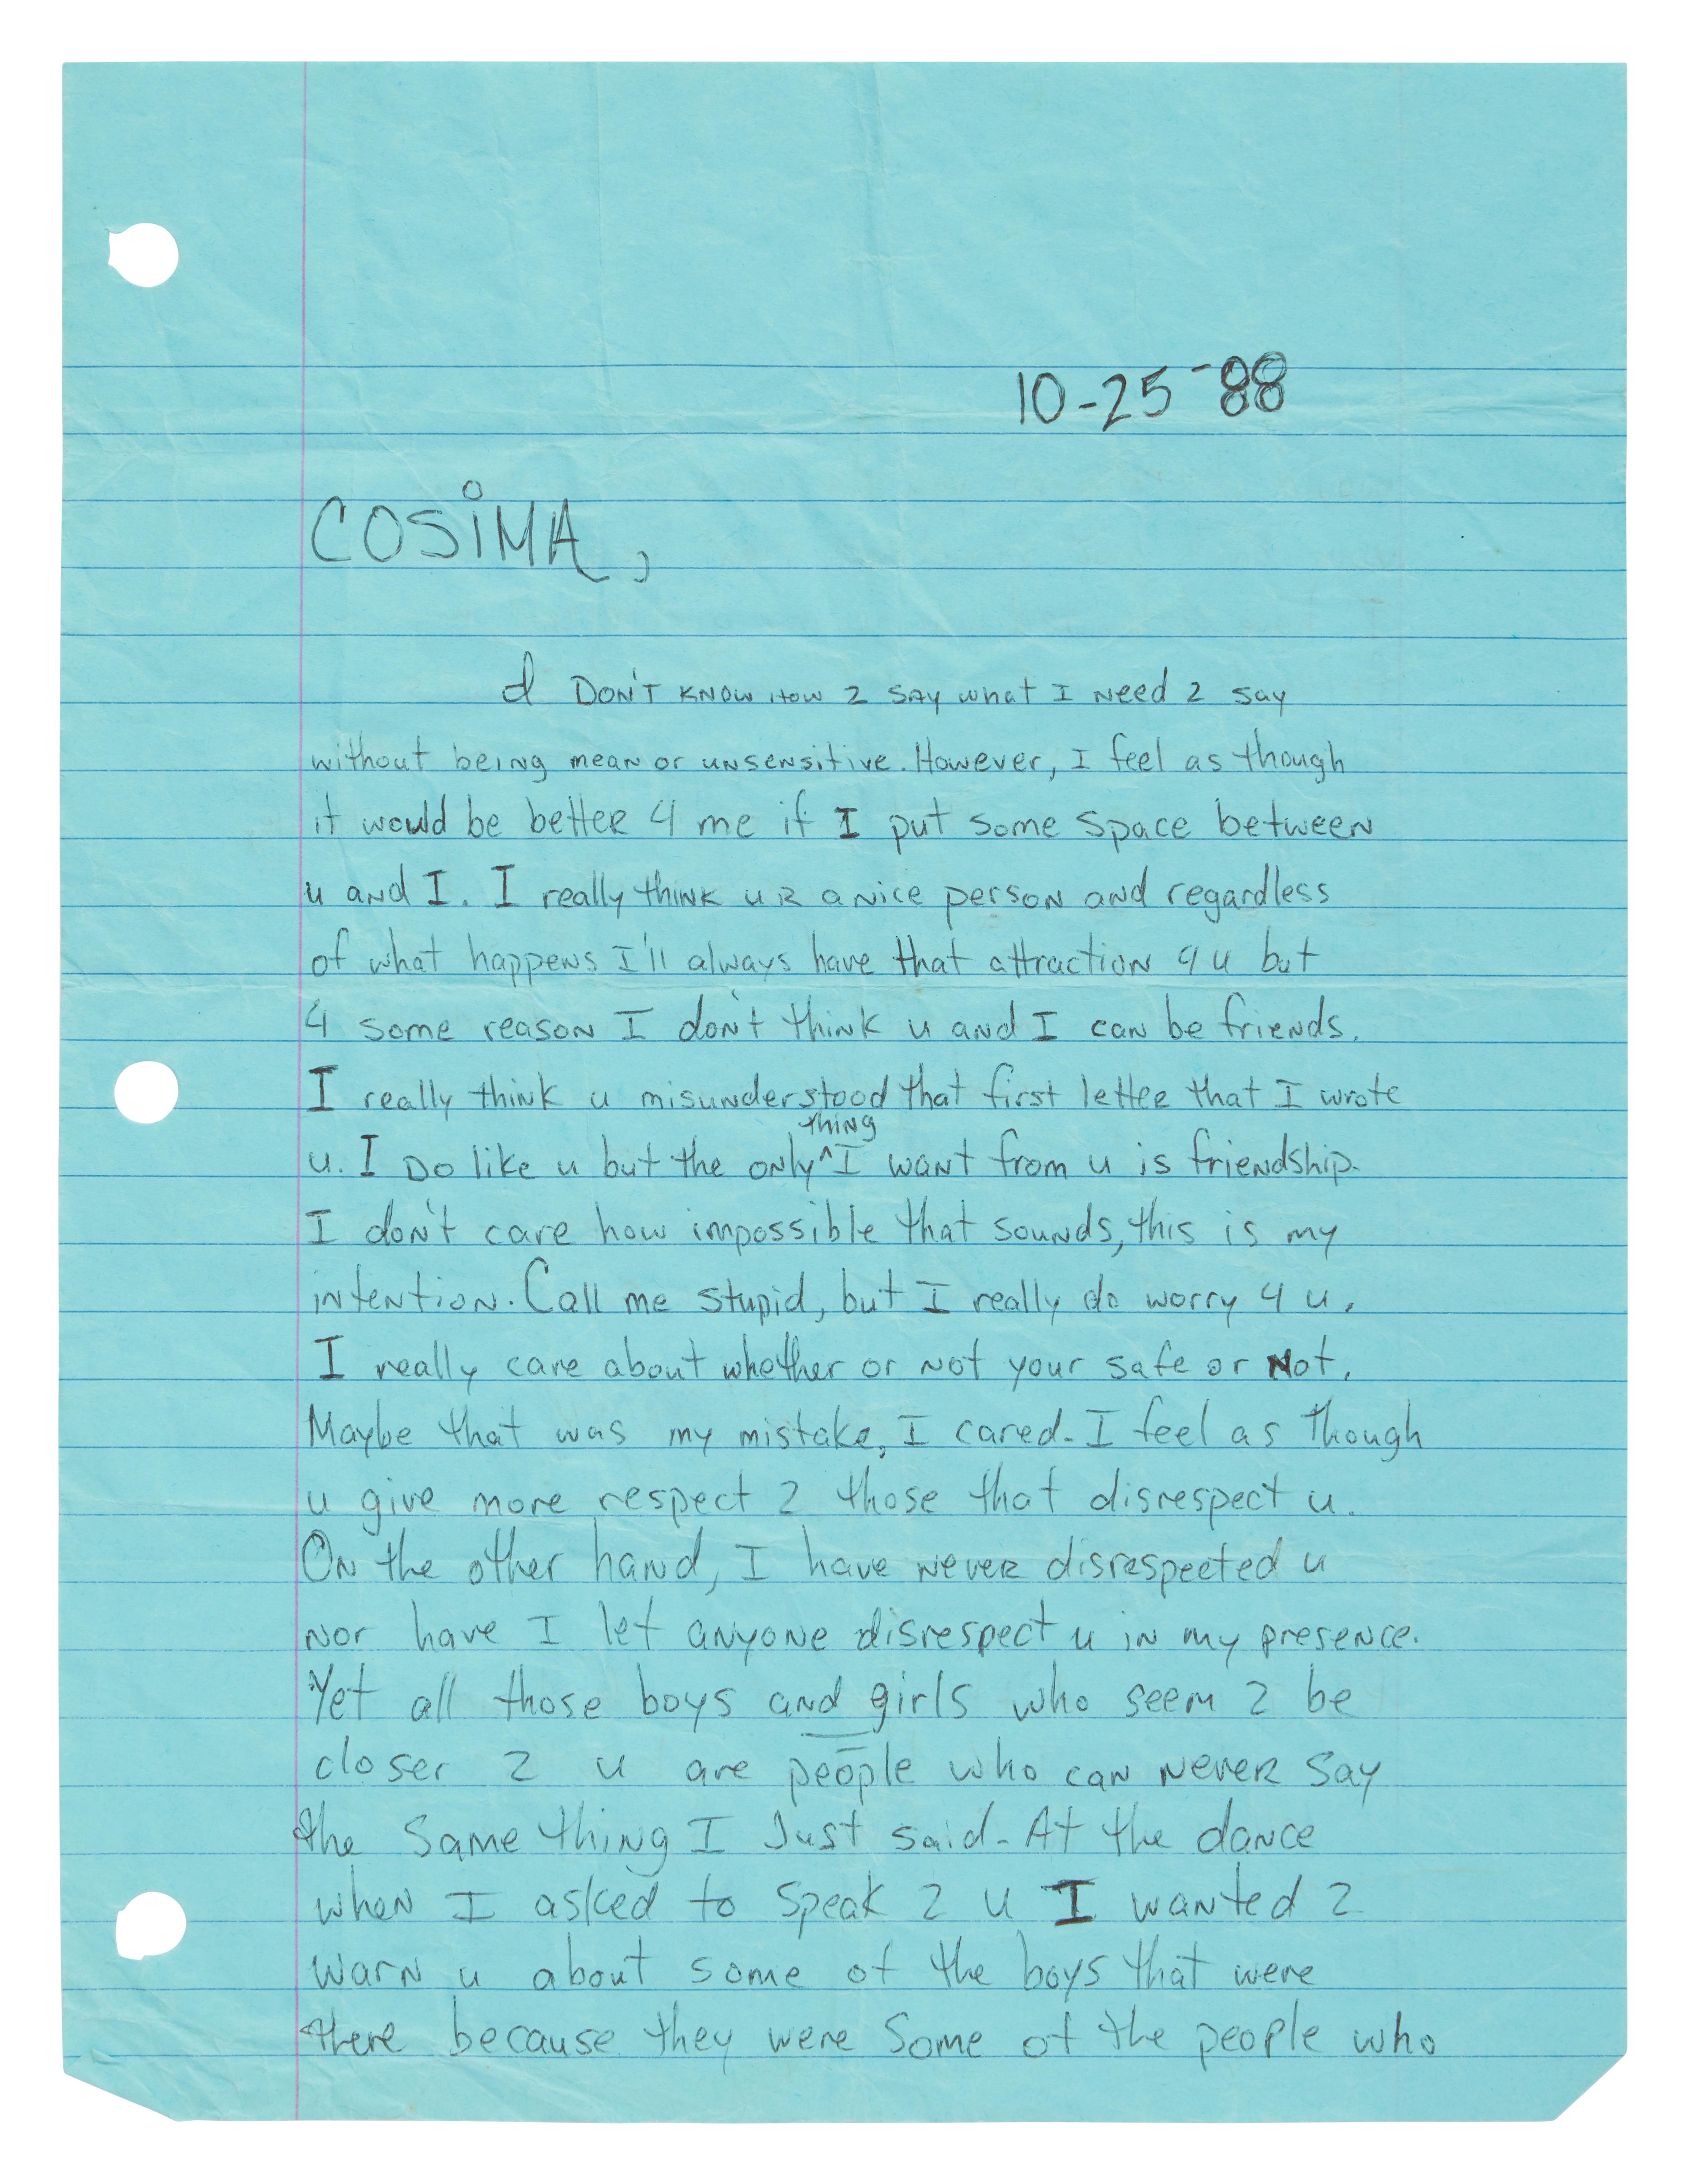 10-25-88
COSiMA,
I DON'T KNOW HOW 2 SAY what I NEED 2 say
without being mean or unsensitive. However, I feel as though
it would be better 4 me if I put some space between
u and I. I really think u R a nice person and regardless
of what happens I'll always have that attraction 4 u but
4 some reason I don't think u and I can be friends.
I really think u misunderstood that first letter that I wrote
thing
u. I Do like u but the only ^ I want from u is friendship.
I don't care how impossible that sounds, this is my
intention. Call me stupid, but I really do worry 4 u.
I really care about whether or not your safe or Not.
Maybe that was my mistake, I cared. I feel as though
u give more respect 2 those that disrespect u.
On the other hand, I have never disrespected u
nor have I let anyone disrespect u in my presence.
Yet all those boys and girls who seem 2 be
closer 2 u are people who can never say
the same thing I Just said. At the dance
when I asked to speak 2 u I wanted 2
warn u about some of the boys that were
there because they were some of the people who